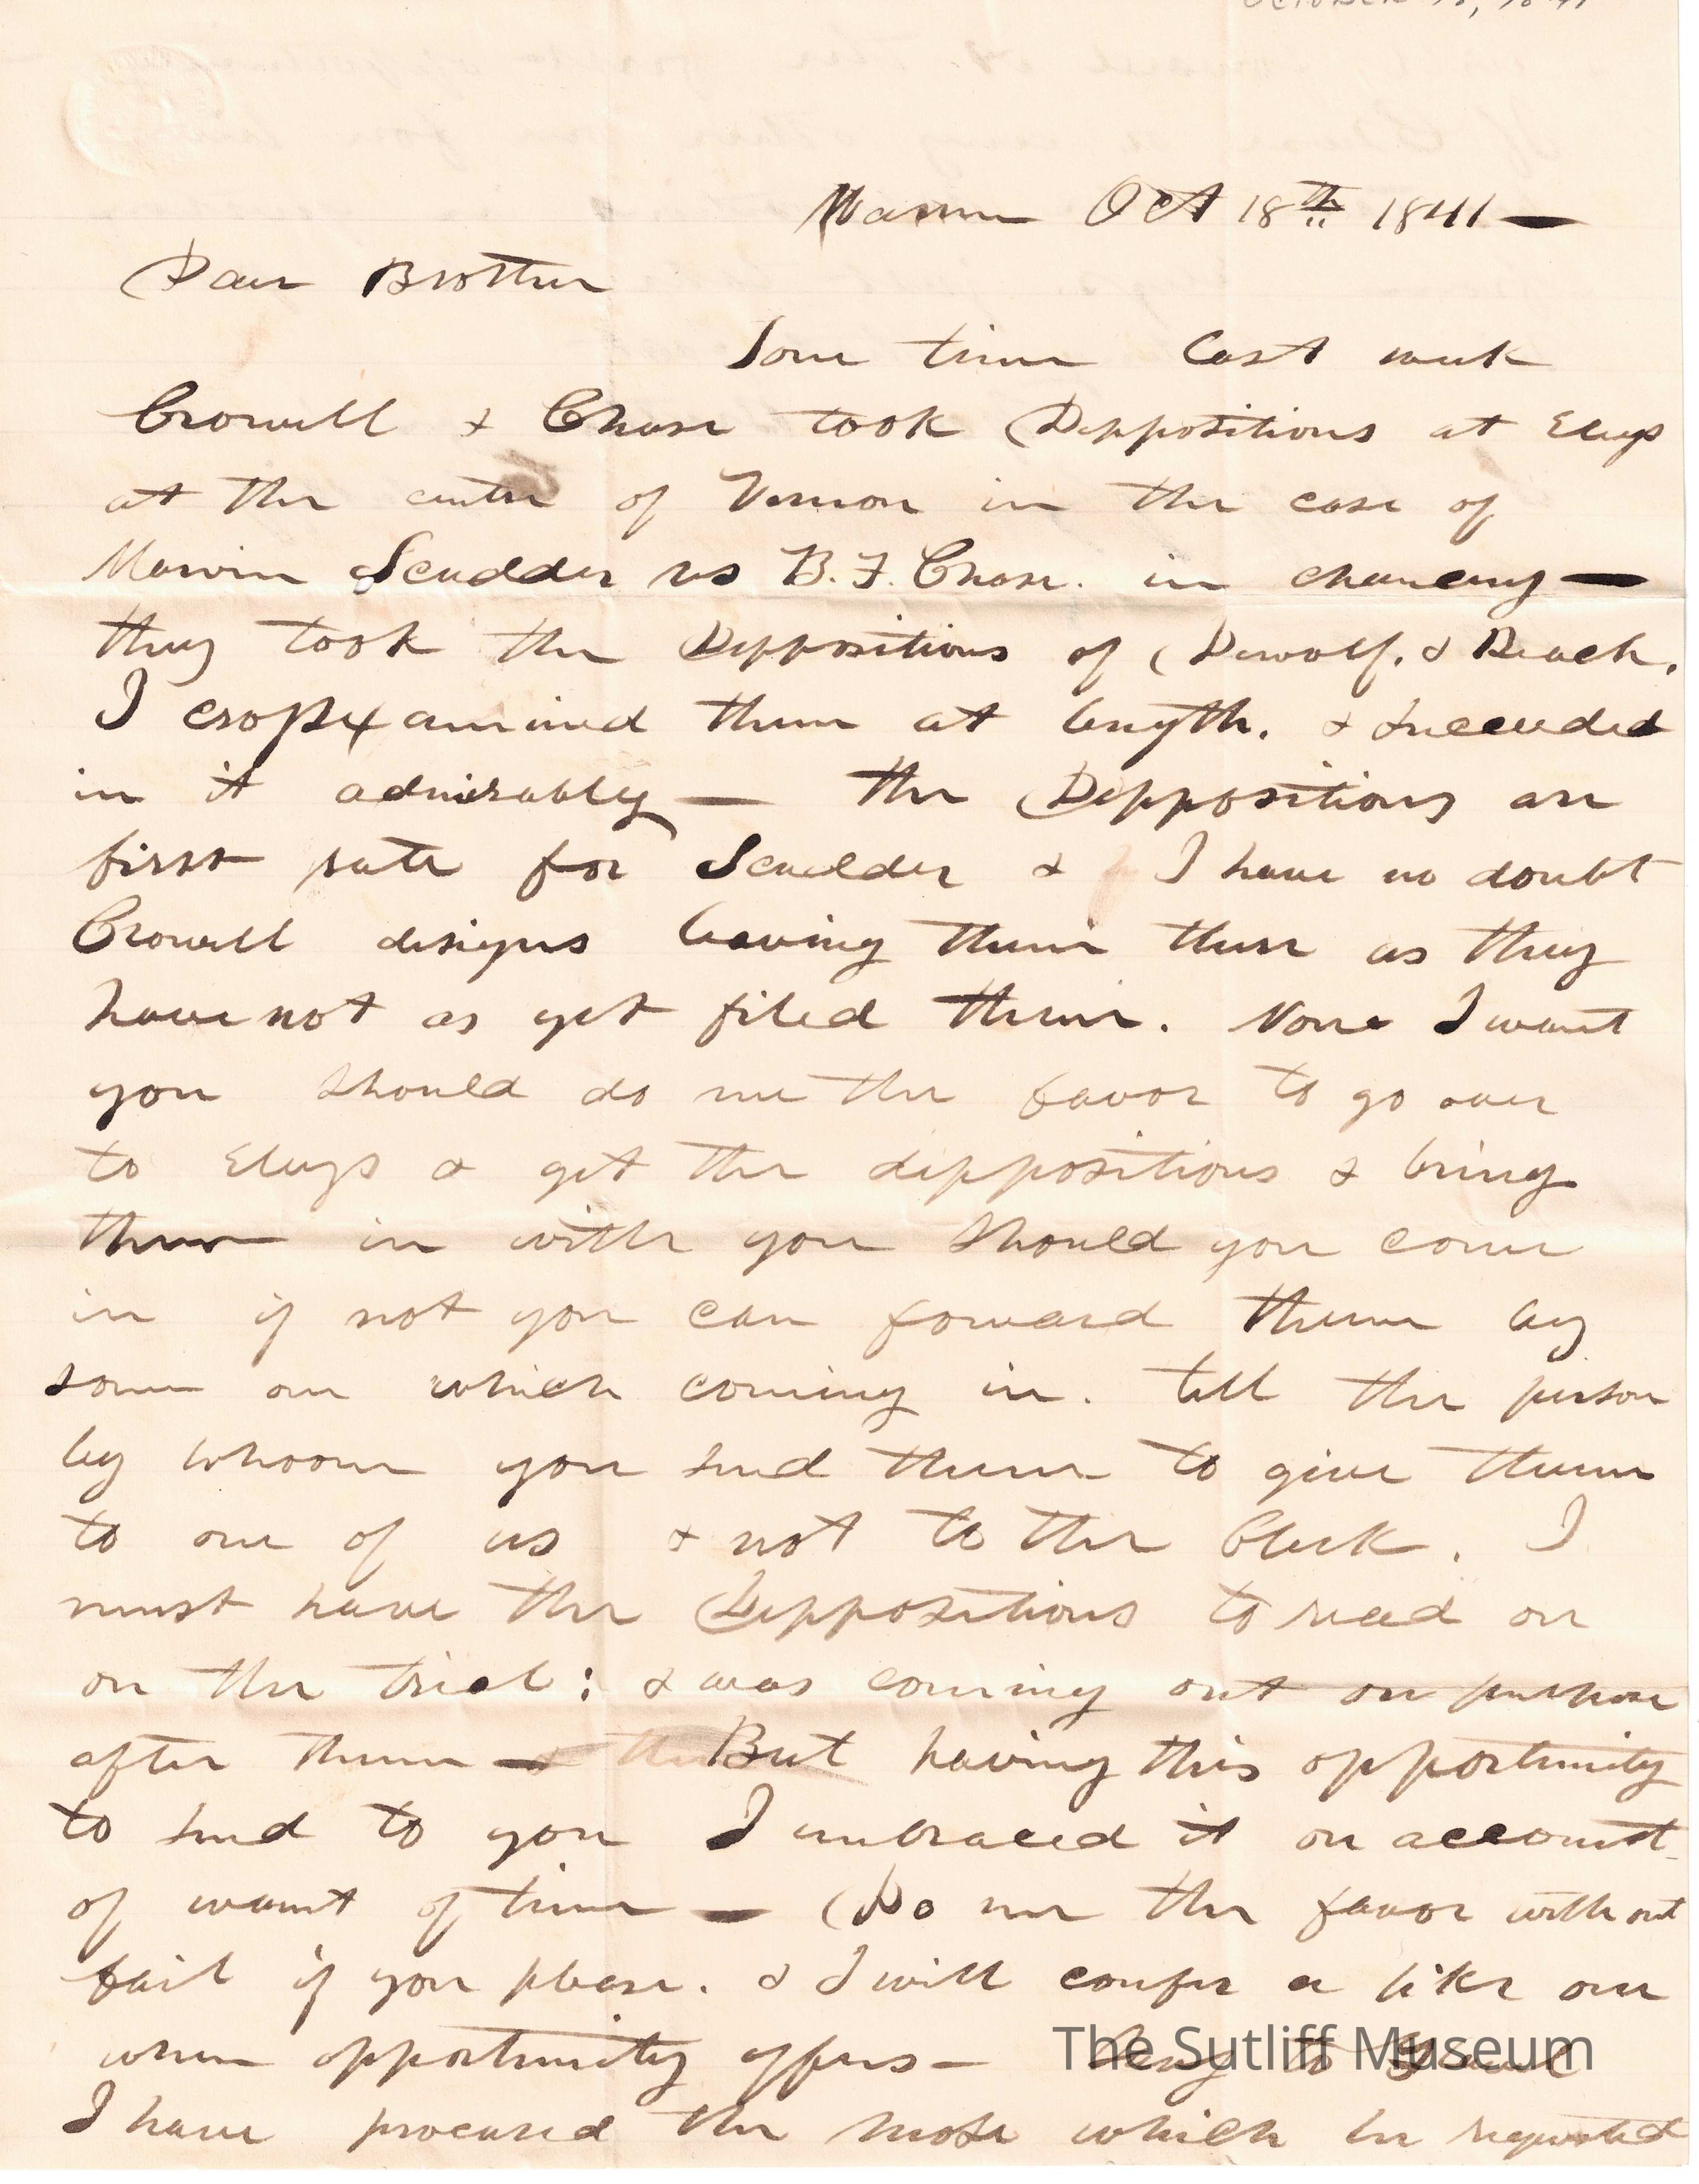 OCTOBER 18, 1841
Warren Oct 18th 1841 —
Dear Brother
Some time last week
Crowell & Chase took Deppositions at Elys
at the center of Vernon in the case of
Marvin Scudder vs B. F. Chase. in chancery —
they took the Deppositions of Dewolf. & Beach.
I cross examined them at length. & succeeded
in it admirably — the Deppositions are
first rate for Scudder & I have no doubt
Crowell designs leaving them there as they
have not as yet filed them. Now I want
you should do me the favor to go over
to Elys & get the deppositions & bring
them in with you should you come
in if not you can forward them by
some one which coming in. tell the person
by whoom you send them to give them
to one of us & not to the Clerk. I
must have the Deppositions to read on
on the trial; & was coming out on purpose
after them — But having this opportunity
to send to you I embraced it on account
of want of time — Do me the favor without
fail if you please. & I will confer a like one
when opportunity offers — to
I have procured the note which he requested
The Sutliff Museum